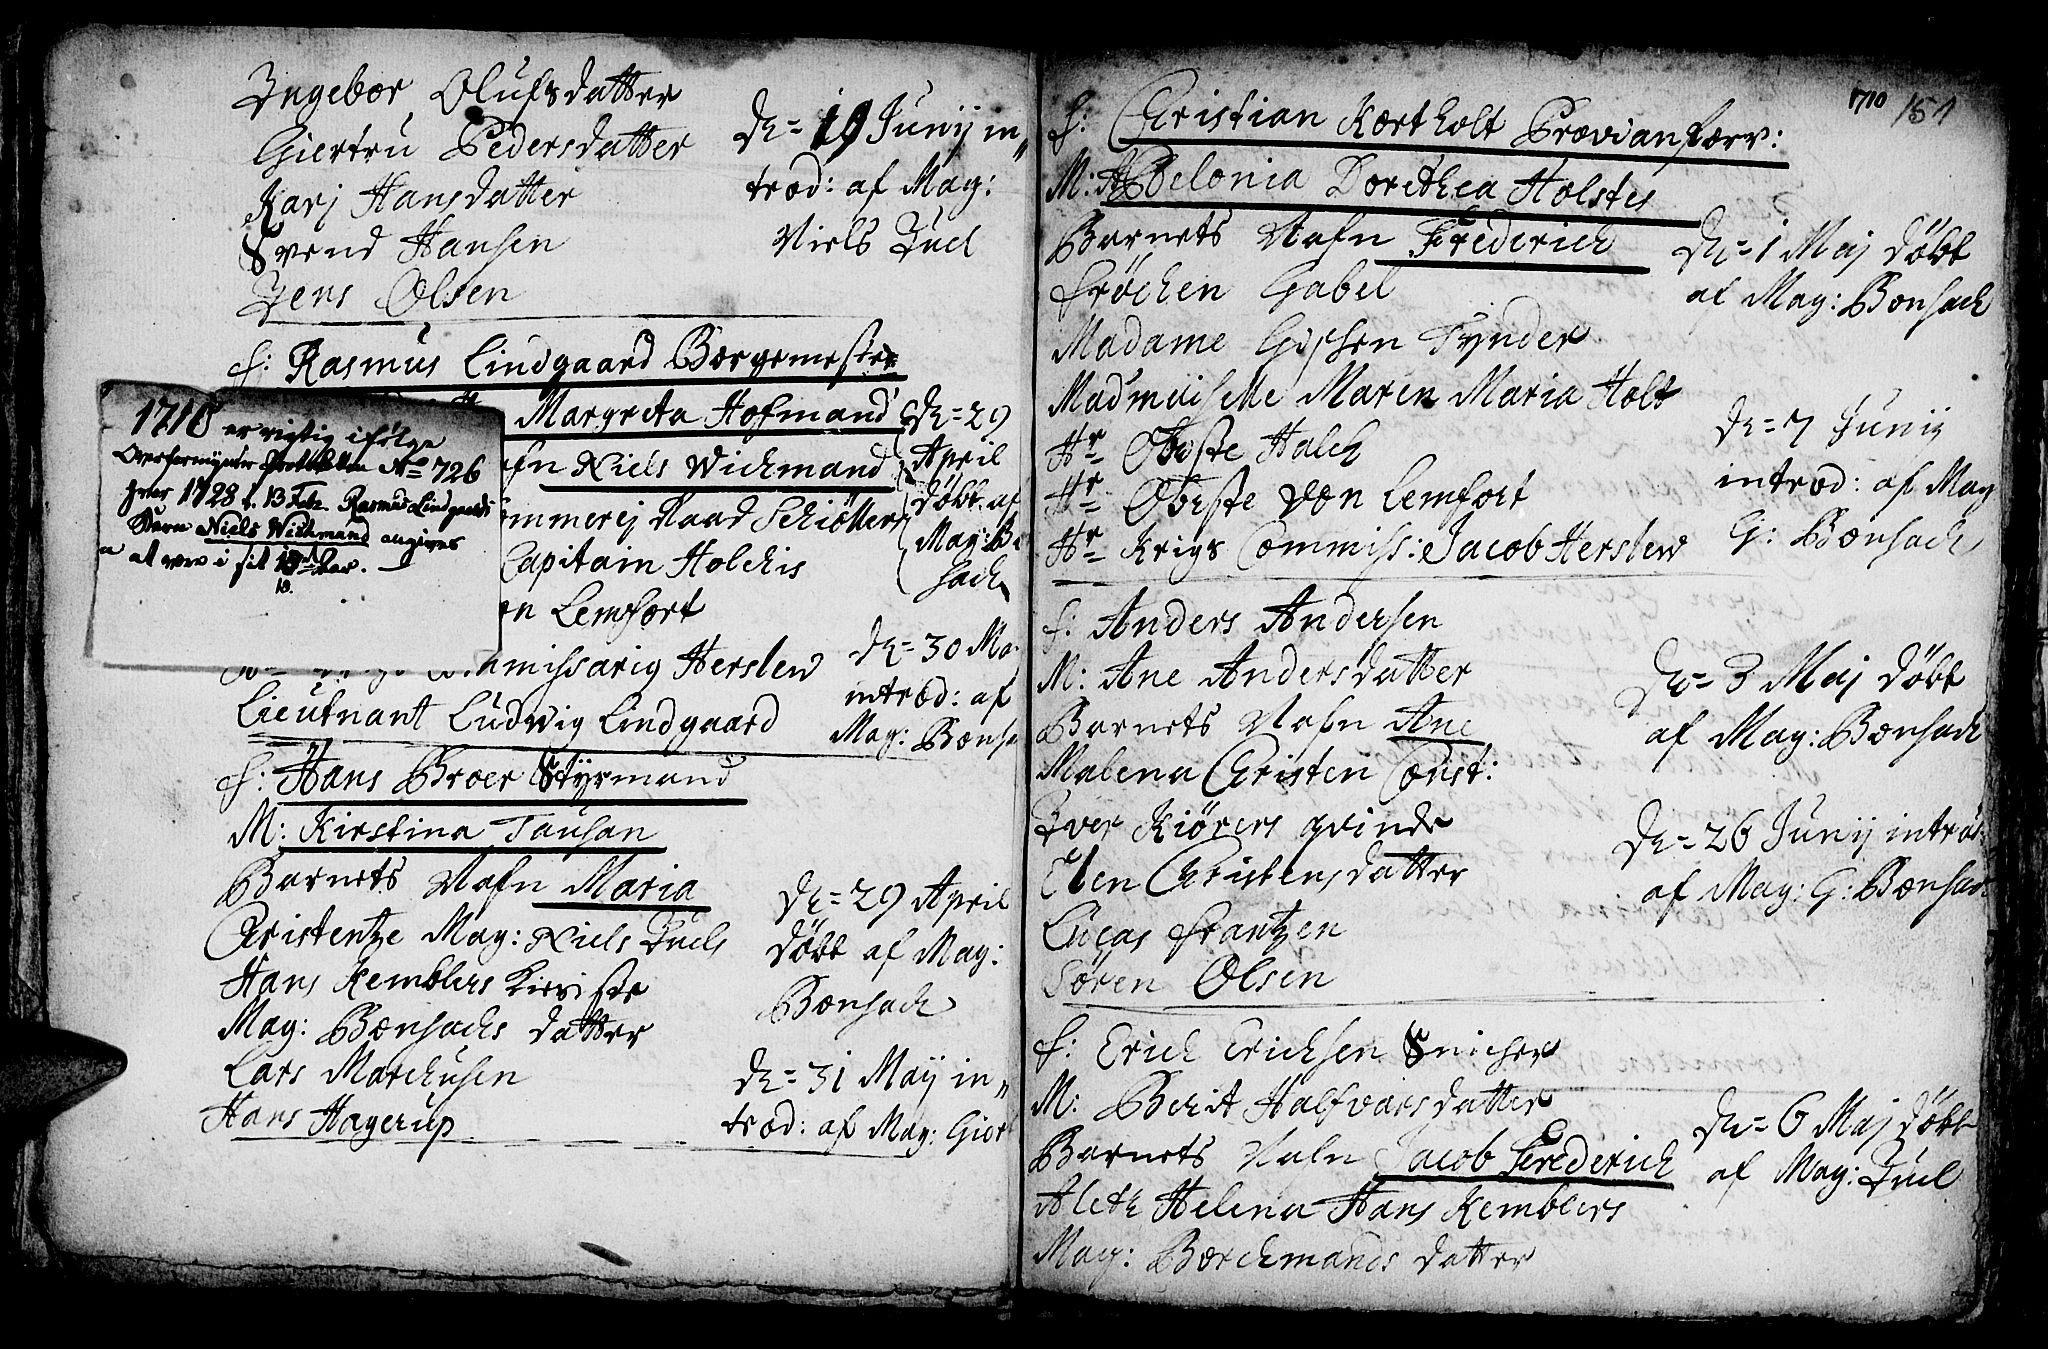 Ingebor Olufsdatter
Giertru Pedersdatter
Karj Hansdatter
Svend Hansen
Jens Olsen
De= 19 Junij in„
trod: af Mag:
Niels Juel
f: Rasmus Lindgaard Borgemester
Margreta Hofmand
Niels Wichmand
Raad Schiöllers
Capitain Holchis
Lemfort
missarig Herslew
Lieutnant Ludwig Lindgaard
De= 29
April
döbt af
Mag: Bo
sach
De= 30 Ma
introd: af
Mag: Bonsa
1710 er rigtig ifølge
Overformynder Protokollen No 726
hvor 1728 d. 13 Febr. Rasmus Lindgaards
Børn Niels Wichmand angives
at være i sit 18de Aar.
18.
f: Hans Broer Styrmand
M: Kirstina Tausan
Barnets Nafn Maria
Christentze Mag: Niels Juels
Hans Kemblers
Mag: Bonsachs datter
Lars Marchusen
Hans Hagerup
De= 29 April
döbt af Mag:
Bonsach
De= 31 Maij in„
trod: af Mag: Giort
1710 151
f: Christian Kortholt Proviantforv:
M: Abelonia Dorethea Holstes
Barnets Nafn Frederich
fröchen Gabel
Madame Tynder
Madmuiselle Maren Maria Holt
Hr Oberste Halch
Hr Oberste von Lemfort
Hr Krigs Commiss: Jacob Herslew
De= 1 Maj döbt
af Mag: Bonsach
De= 7 Junij
introd: af Mag
G: Bonsach
f: Anders Andersen
M: Ane Andersdatter
Barnets Nafn Ane
Malena Christen Const:
Iver Kiörers qvinde
Elen Christensdatter
Lucas frantzen
Sören Olsen
De= 3 Maj döbt
af Mag: Bonsach
De= 26 Junij introd
af Mag: G: Bonsach
f: Erich Erichsen Snicher
M: Berit Halfvorsdatter
Barnets Nafn Jacob Frederich
Aleth Helena Hans Kemblers
Mag: Borchmands datter
De= 6 Maj döbt
af Mag: Juel